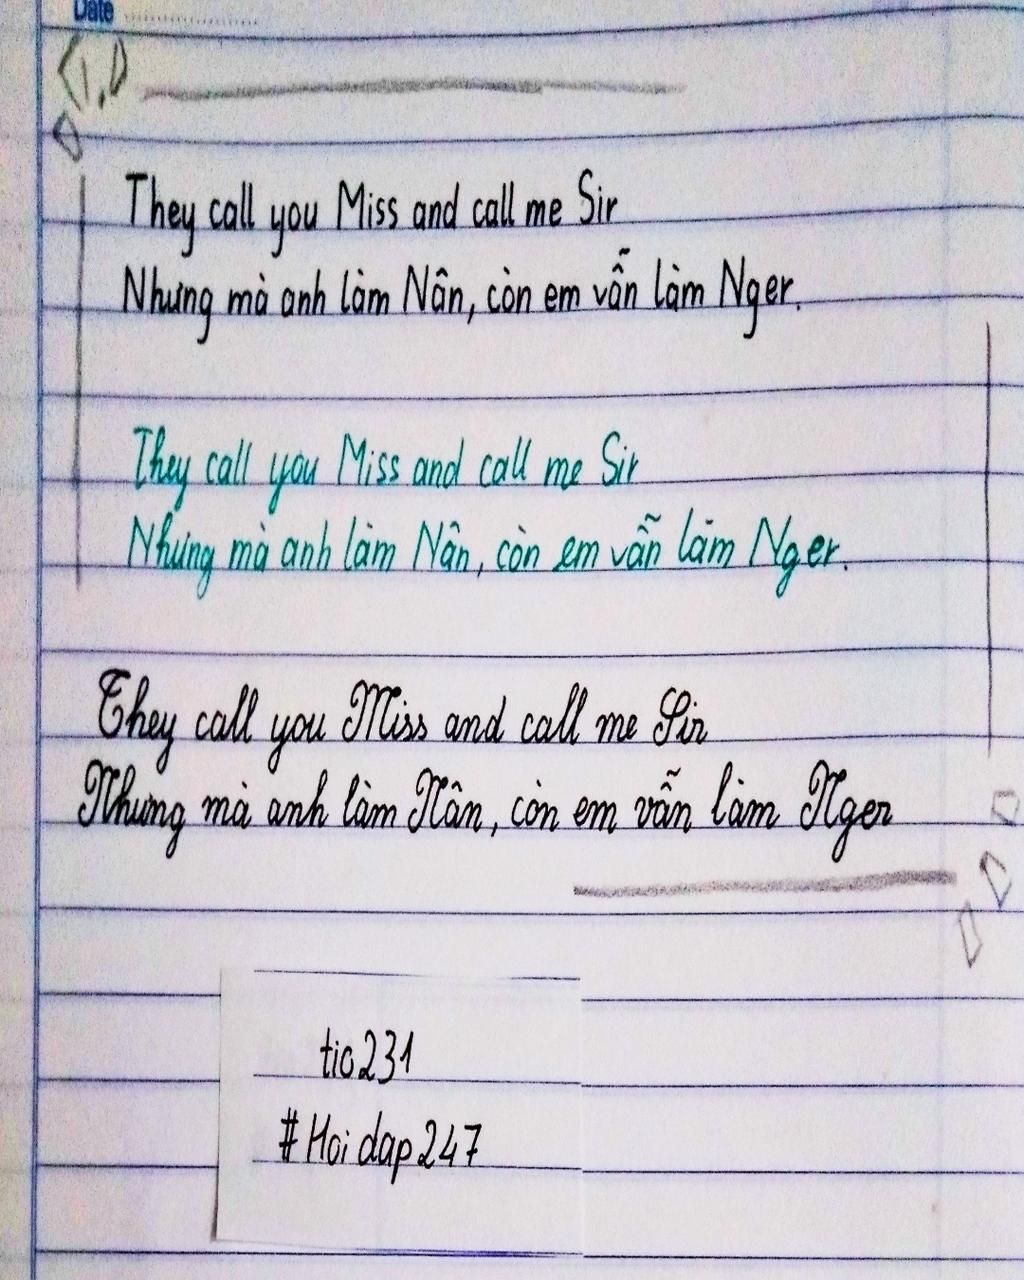 Date
They call you Miss and call me Sir
Nhưng mà anh làm Nân, còn em vẫn làm Nger.
They call you Miss and call me Sir
Nhưng mà anh làm Nân, còn em vẫn làm Nger.
They call you Miss and call me Sir
Nhưng mà anh làm Nân, còn em vẫn làm Nger
tio231
#Hoidap247